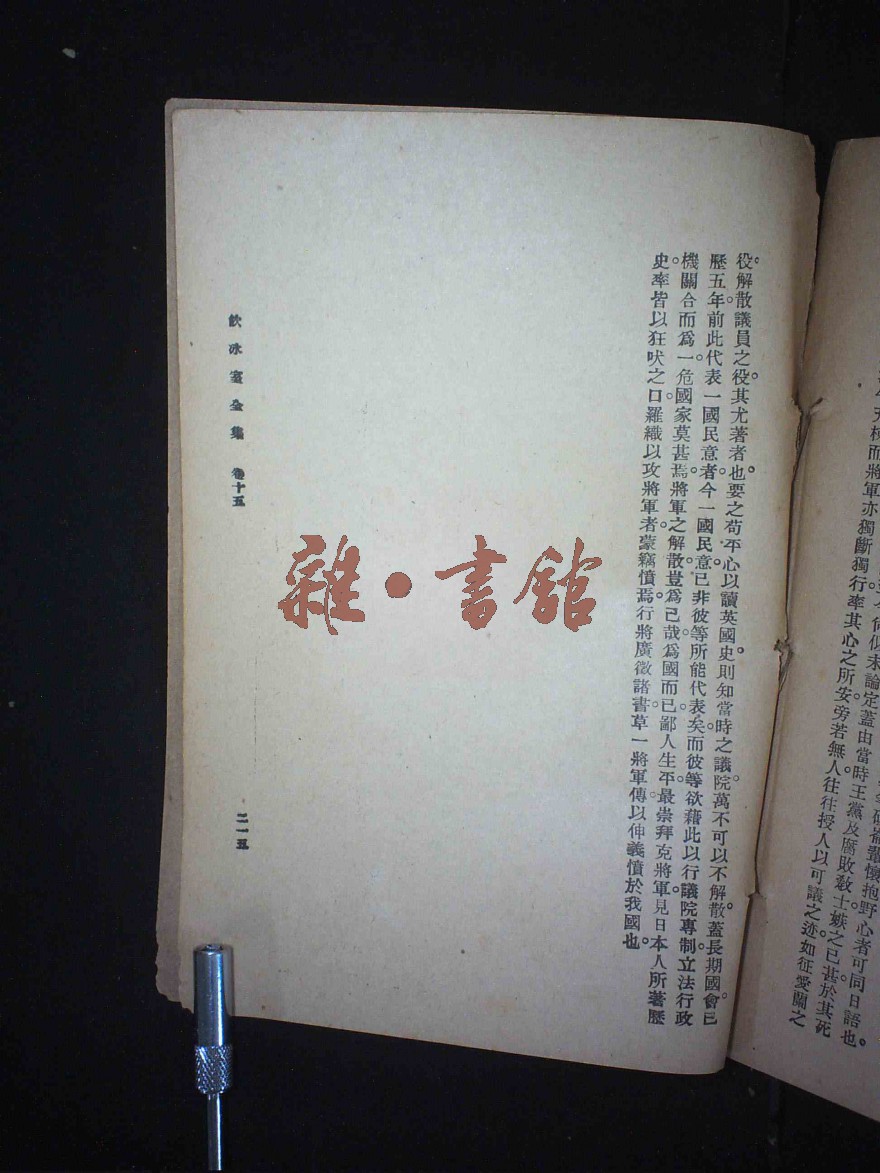 天
而將軍亦獨斷獨行率其心之所安旁若無人往往授人以可議之迹如征愛蘭之
似未論定蓋由當時王黨及腐敗敎士嫉之已甚於其死
懷抱野心者可同日語也。
役。解散議員之役。其尤著者也。要之苟平心以讀英國史。則知當時之議院。萬不可以不解散。蓋長期國會已
歷五年。前此代表一國民意者。今一國民意。已非彼等所能代表矣。而彼等欲藉此以行議院專制。立法行政
機關。合而爲一。危國家莫甚焉。將軍之解散。豈爲己哉。爲國而已。鄙人生平最崇拜克將軍。見日本人所著歷
史。率皆以狂吠之口。羅織以攻將軍者。蒙竊憤焉。行將廣徵諸書。草一將軍傳。以伸義憤於我國也。
飮冰室全集 卷十五
二一五
雜·書館